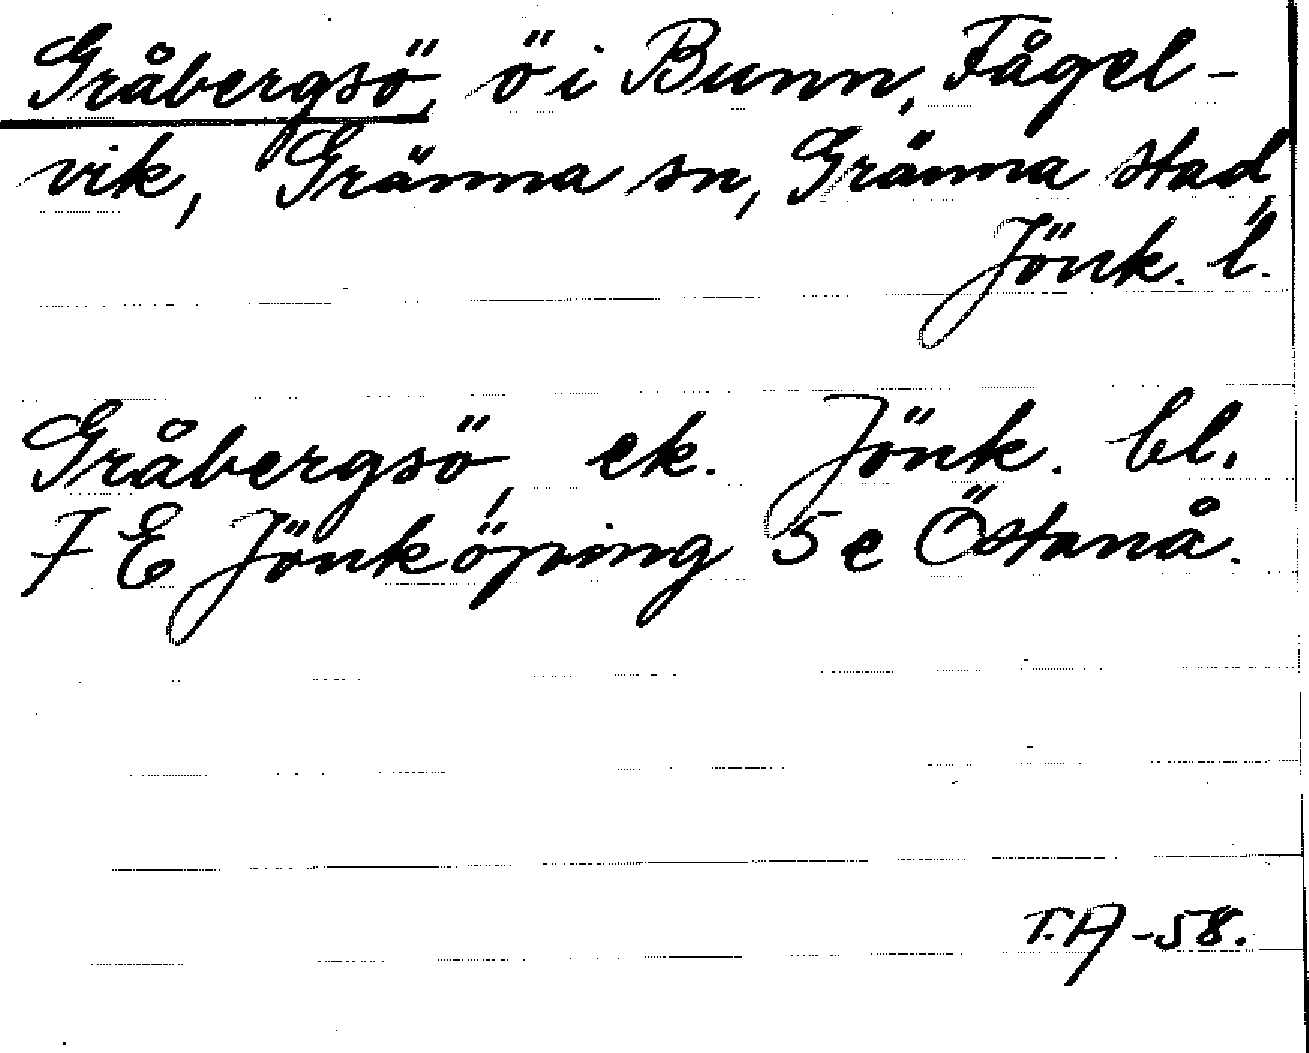 Gråbergsö, ö i Bunn, Fågel-
vik, Gränna sn, Gränna stad,
Jönk. l.
Gråbergsö, ek. Jönk. bl.
7 E Jönköping 5 e Östanå.
T.A -58.